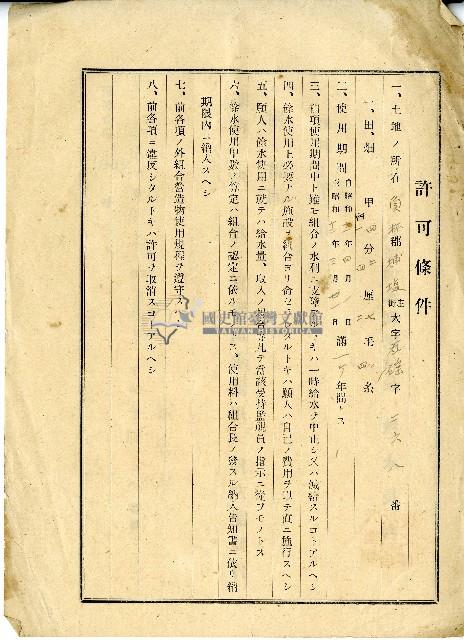 許可條件
一、土地ノ所在 員林郡埔塩庄 大字 字 番
一、田、畑 甲 分 厘 毛 糸
二、使用期間 自昭和 年 月 日 至昭和 年 月 日 滿 年間トス
三、前項使用期間中ト雖モ組合ノ水利ニ支障 トキハ一時給水ヲ中止シ又ハ減給スルコトアルヘシ
四、餘水使用上必要ナル施設ヲ組合ヨリ命セラレタルトキハ願人ハ自己ノ費用ヲ以テ直ニ施行スヘシ
五、願人ハ餘水使用ニ就テハ給水量、取入ノ 等凡テ當該受持監視員ノ指示ニ從フモノトス
六、餘水使用甲數ノ算定ハ組合ノ認定ニ依ルモノトス、使用料ハ組合長ノ發スル納入告知書ニ依リ納
期限內ニ納入スヘシ
七、前各項ノ外組合營造物使用規程ヲ遵守スヘシ
八、前各項ニ違反シタルトキハ許可ヲ取消スコトアルヘシ
國史館臺灣文獻館
TAIWAN HISTORICA